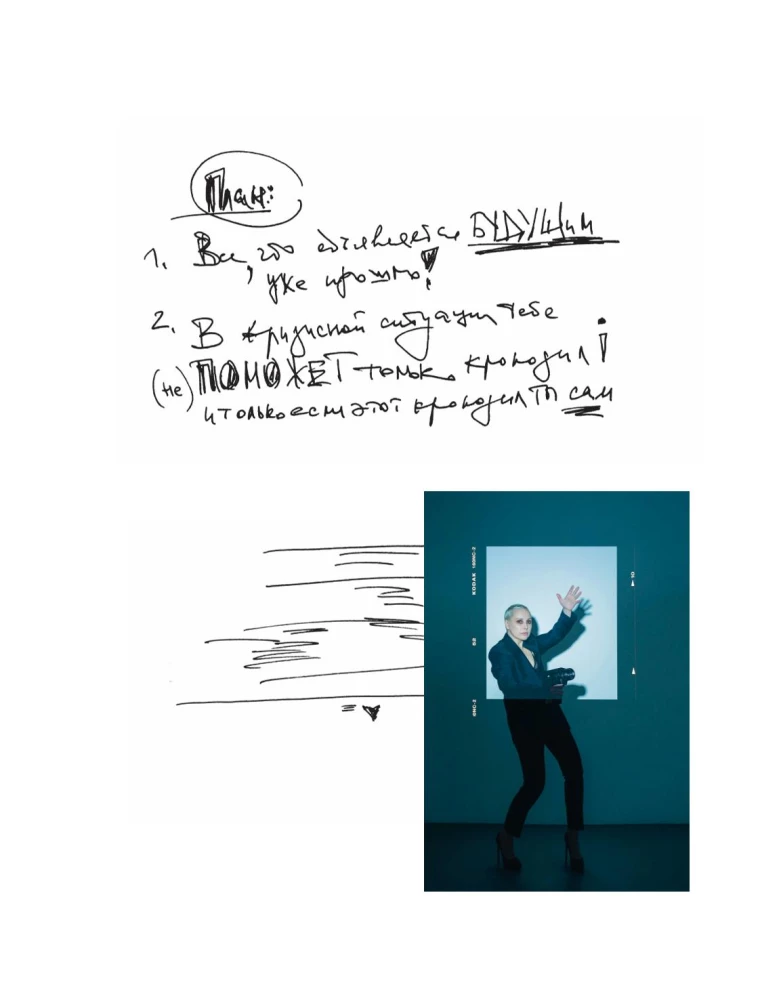 План:
1. Все, что объявляется БУДУЩИМ
уже прошло!
2. В кризисной ситуации тебе
(не) ПОМОЖЕТ только крокодил!
и только если этот крокодил ты сам
KODAK 160NC-2